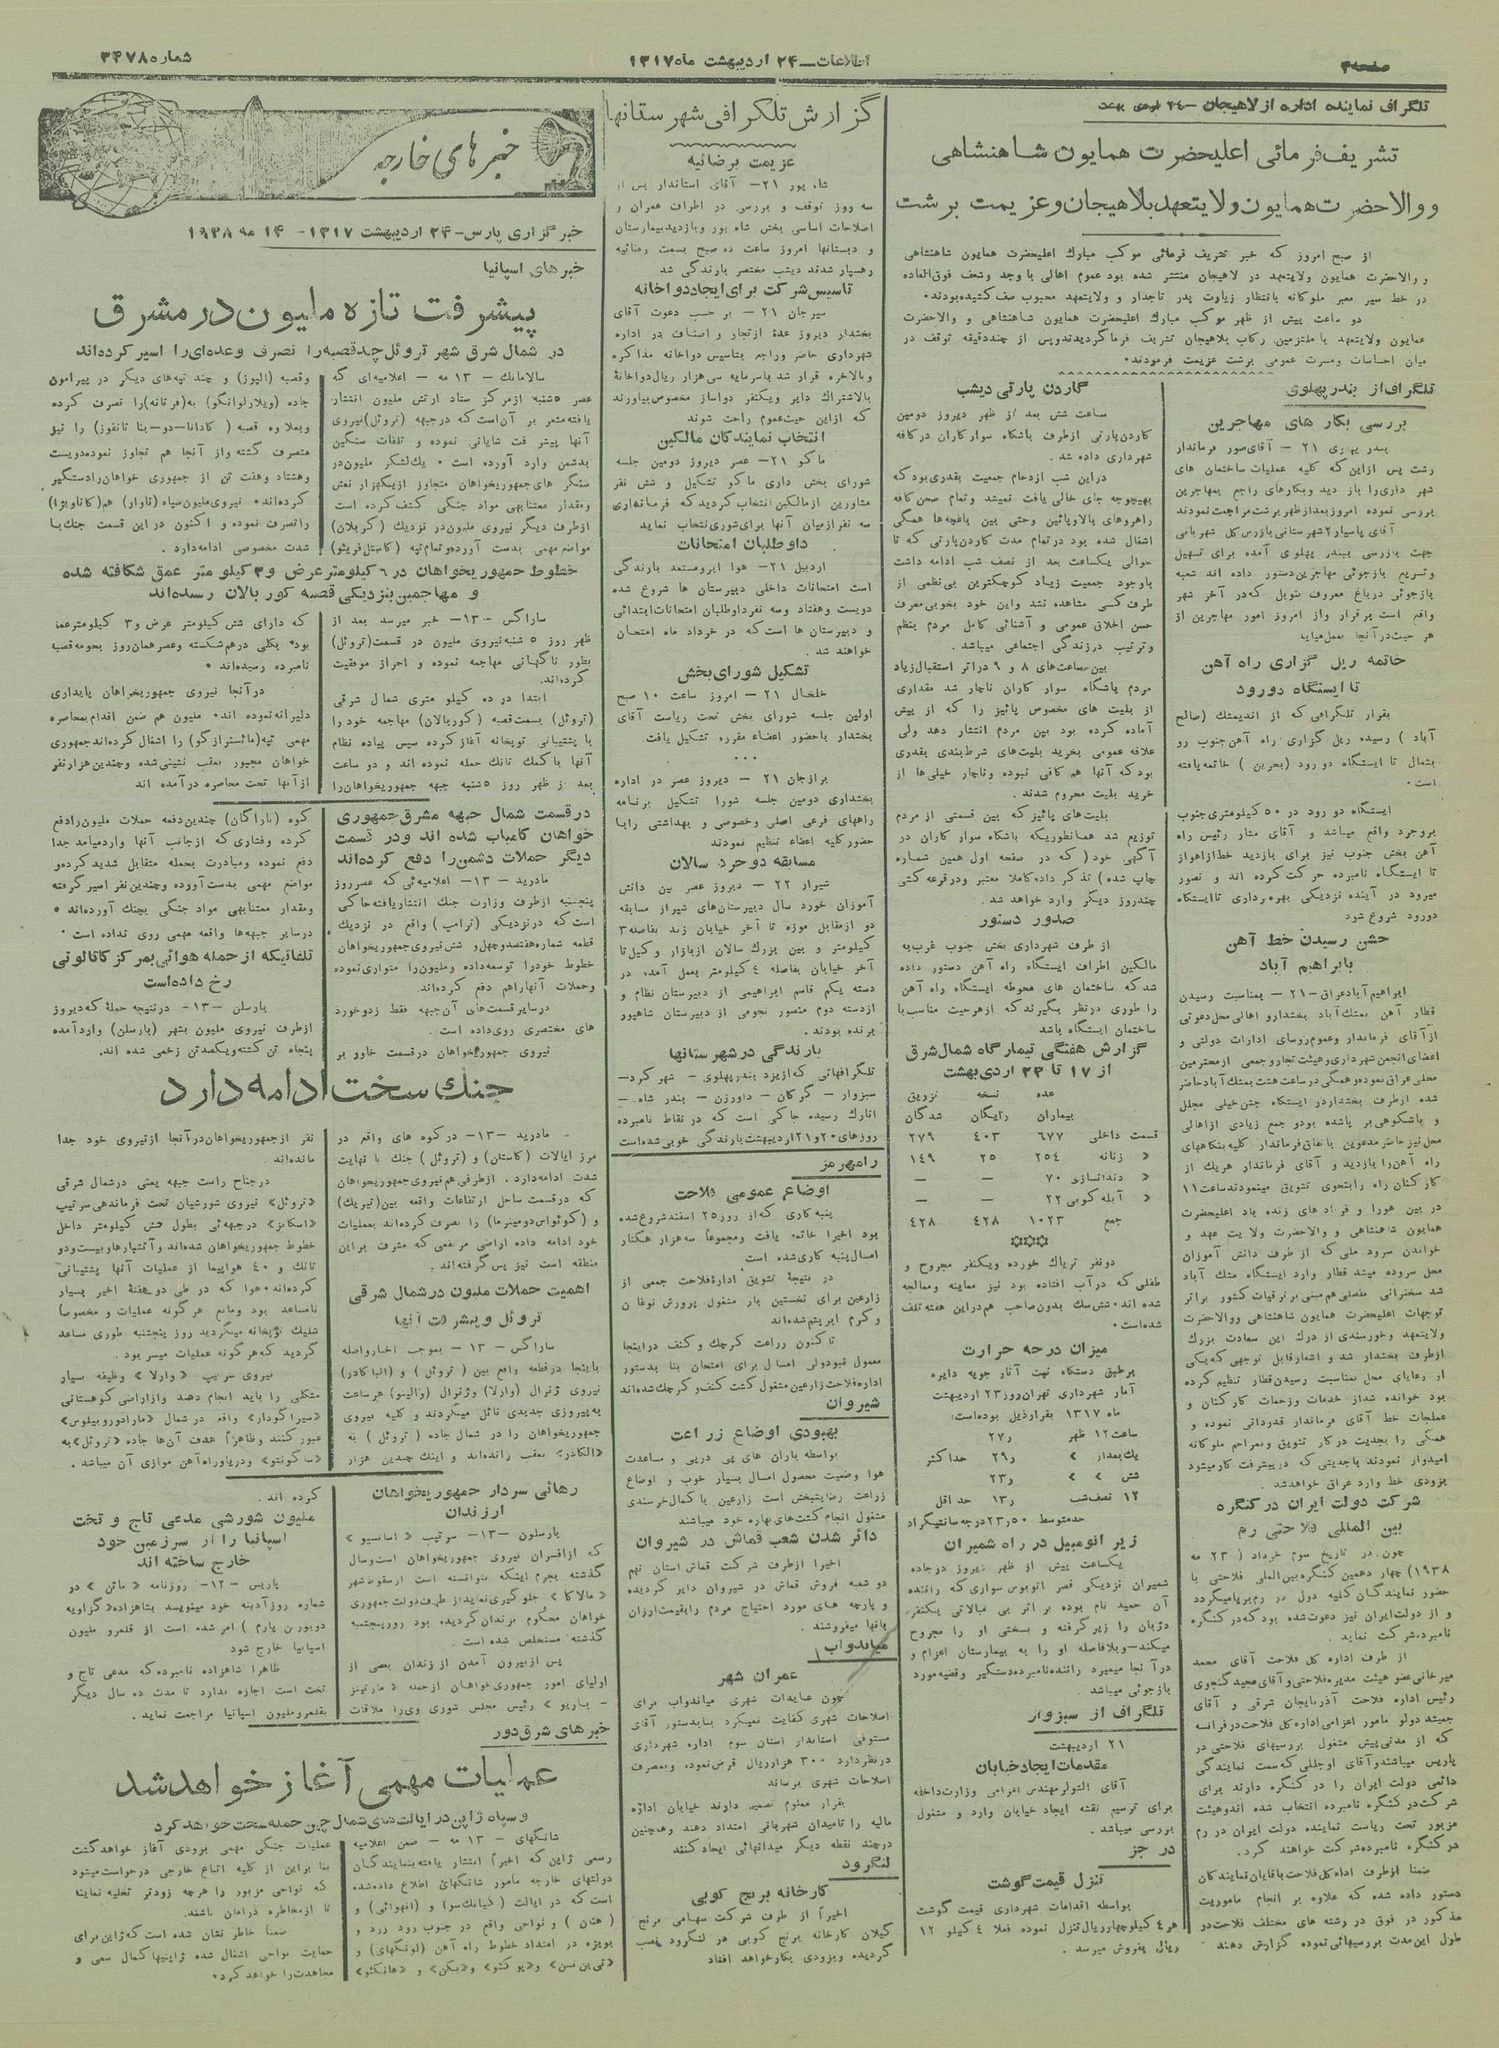 صفحه ۳
اطلاعات ــ ۲۴ اردیبهشت ماه ۱۳۱۷
شماره ۳۴۷۸
تلگراف نماینده اداره از لاهیجان
تشریف فرمائی اعلیحضرت همایون شاهنشاهی
و والاحضرت همایون ولایتعهد بلاهیجان و عزیمت برشت
از صبح امروز که خبر تشریف فرمائی موکب مبارك اعلیحضرت همایون شاهنشاهی
و والاحضرت همایون ولایتعهد در لاهیجان منتشر شده بود عموم اهالی با وجد و شعف فوق‌العاده
در خط سیر معبر ملوکانه بانتظار زیارت پدر تاجدار و ولایتعهد محبوب صف کشیده بودند.
دو ساعت پیش از ظهر موکب مبارك اعلیحضرت همایون شاهنشاهی و والاحضرت
همایون ولایتعهد با ملتزمین رکاب بلاهیجان تشریف فرما گردیدند و پس از چند دقیقه توقف در
میان احساسات و مسرت عمومی برشت عزیمت فرمودند.
تلگراف از بندر پهلوی
بررسی بکار های مهاجرین
بندر پهلوی ۲۱ – آقای صور فرماندار
رشت پس از این که کلیه عملیات ساختمان های
شهر داری را باز دید و بکارهای راجع بمهاجرین
بررسی نموده امروز بعد از ظهر برشت مراجعت نمودند
آقای پاسیار ۲ شهرستانی بازرس کل شهربانی
جهت بازرسی ببندر پهلوی آمده برای تسهیل
و تسریع بازجوئی مهاجرین دستور داده اند شعبه
بازجوئی در باغ معروف بنوبل که در آخر شهر
واقع است برقرار و از امروز امور مهاجرین از
هر حیث در آنجا بعمل میاید
خاتمه ریل گزاری راه آهن
تا ایستگاه دورود
بقرار تلگرافی که از اندیمشك (صالح
آباد ) رسیده ریل گزاری راه آهن جنوب رو
بشمال تا ایستگاه دو رود (بحرین ) خاتمه یافته
است.
ایستگاه دو رود در ۵۰ کیلومتری جنوب
بروجرد واقع میباشد و آقای رئیس راه
آهن بخش جنوب نیز برای بازدید خط از اهواز
تا ایستگاه نامبرده حرکت کرده اند و تصور
میرود در آینده نزدیکی بهره برداری تا ایستگاه
دورود شروع شود
جشن رسیدن خط آهن
بابراهیم آباد
ابراهیم آباد عراق – ۲۱ – بمناسبت رسیدن
قطار آهن بمشك آباد بخشدار و اهالی محل دعوتی
از آقای فرماندار و عموم روسای ادارات دولتی و
اعضای انجمن شهرداری و هیئت تجار و جمعی از محترمین
محلی عراق نموده و همگی در ساعت هشت بمشك آباد حاضر
شده از طرف بخشدار در ایستگاه جشن خیلی مجلل
و باشکوهی بر پا شده بود و جمع زیادی از اهالی
محل نیز حاضر مدعوین باتفاق فرماندار کلیه بنگاههای
راه آهن را بازدید و آقای فرماندار هر یك از
کارکنان راه را بنحوی تشویق مینمودند ساعت ۱۱
در بین هورا و فریاد های زنده باد اعلیحضرت
همایون شاهنشاهی و والاحضرت ولایت عهد و
خواندن سرود ملی که از طرف دانش آموزان
محل سروده میشد قطار وارد ایستگاه مشك آباد
شد سخنرانی مفصلی هم مبنی بر ترقیات کشور بر اثر
توجهات اعلیحضرت همایون شاهنشاهی و والاحضرت
ولایتعهد و خورسندی از درك این سعادت بزرك
از طرف بخشدار شد و اشعار قابل توجهی که یکی
از رعایای محل بمناسبت رسیدن قطار تنظیم کرده
بود خوانده شد از خدمات و زحمات کارکنان و
عملجات خط آقای فرماندار قدردانی نموده و
همگی را بجدیت در کار تشویق و بمراحم ملوکانه
امیدوار نمودند با جدیتی که در پیشرفت کار میشود
بزودی خط وارد عراق خواهد شد.
شرکت دولت ایران در کنگره
بین المللی فلاحتی رم
چون در تاریخ سوم خرداد ( ۲۳ مه
۱۹۳۸) چهار دهمین کنگره بین المللی فلاحتی با
حضور نمایندگان کلیه دول در رم بر پا میگردد
و از دولت ایران نیز دعوت شده بود که در کنگره
نامبرده شرکت نماید.
از طرف اداره کل فلاحت آقای محمد
میرخانی عضو هیئت مدیره فلاحتی و آقای مجید گنجوی
رئیس اداره فلاحت آذربایجان شرقی و آقای
جمشید دولو مامور اعزامی اداره کل فلاحت در فرانسه
که از مدتی پیش مشغول بررسیهای فلاحتی در
پاریس میباشند و آقای اوجللی که سمت نمایندگی
دائمی دولت ایران را در کنگره دارند برای
شرکت در کنگره نامبرده انتخاب شده اند و هیئت
مزبور تحت ریاست نماینده دولت ایران در رم
در کنگره نامبرده شرکت خواهند کرد.
ضمنا از طرف اداه کل فلاحت باقایان نمایندگان
دستور داده شده که علاوه بر انجام ماموریت
مذکور در فوق در رشته های مختلف فلاحت در
طول این مدت بررسیهائی نموده گزارش دهند
گاردن پارتی دیشب
ساعت شش بعد از ظهر دیروز دومین
گاردن پارتی از طرف باشگاه سوار کاران در کافه
شهرداری داده شد.
در این شب ازدحام جمعیت بقدری بود که
بهیچوجه جای خالی یافت نمیشد و تمام صحن کافه
راهروهای بالا و پائین و حتی بین باغچه‌ها همگی
اشغال شده بود در تمام مدت گاردن پارتی که تا
حوالی یکساعت بعد از نصف شب ادامه داشت
باوجود جمعیت زیاد کوچکترین بی‌نظمی از
طرف کسی مشاهده نشد و این خود بخوبی معرف
حسن اخلاق عمومی و آشنائی کامل مردم بنظم
و ترتیب در زندگی اجتماعی میباشد.
بین ساعت‌های ۸ و ۹ در اثر استقبال زیاد
مردم باشگاه سوار کاران ناچار شد مقداری
از بلیت های مخصوص پائیز را که از پیش
آماده کرده بود بین مردم انتشار دهد ولی
علاقه عمومی بخرید بلیت‌های شرط‌بندی بقدری
بود که آنها هم کافی نبوده و ناچار خیلی‌ها از
خرید بلیت محروم شدند.
بلیت‌های پائیز که بین قسمتی از مردم
توزیع شد همانطوریکه باشگاه سوار کاران در
آگهی خود ( که در صفحه اول همین شماره
چاپ شده ) تذکر داده کاملا معتبر و در قرعه کشی
چند روز دیگر وارد خواهد شد.
صدور دستور
از طرف شهرداری بخش جنوب غرب به
مالکین اطراف ایستگاه راه آهن دستور داده
شد که ساختمان های محوطه ایستگاه راه آهن
را طوری در نظر بگیرند که از هر حیث مناسب با
ساختمان ایستگاه باشد
گزارش هفتگی تیمارگاه شمال شرق
از ۱۷ تا ۲۳ اردی بهشت
عده نسخه تزریق
بیماران رایگان شدگان
قسمت داخلی ۶۷۷ ۴۰۳ ۲۷۹
« زنانه ۲۵۴ ۲۵ ۱۴۹
« دندانسازی ۷۰ — —
« آبله کوبی ۲۲ — —
جمع ۱۰۲۳ ۴۲۸ ۴۲۸
دو نفر تریاك خورده و یکنفر مجروح و
طفلی که در آب افتاده بود نیز معاینه و معالجه
شده اند. شش سك بدون صاحب هم در این هفته تلف
شده است.
میزان درجه حرارت
بر طبق دستگاه ثبت آثار جویه دایره
آمار شهرداری تهران روز ۲۳ اردیبهشت
ماه ۱۳۱۷ بقرار ذیل بوده است:
ساعت ۱۲ ظهر ۲۷٫
یك بعد از » ۲۹٫ حداکثر
شش » » ۲۳٫
۱۲ نصف شب ۱۳٫ حد اقل
حد متوسط ۲۳٫۵۰ درجه سانتیگراد
زیر اتومبیل در راه شمیران
یکساعت پیش از ظهر دیروز در جاده
شمیران نزدیکی قصر اتوبوس سواری که راننده
آن حمید نام بوده بر اثر بی مبالاتی یکنفر
دژبان را زیر گرفته و بسختی او را مجروح
میکند – بلافاصله او را به بیمارستان اعزام و
در آنجا میمیرد راننده نامبرده دستگیر و قضیه مورد
بازجوئی میباشد.
تلگراف از سبزوار
۲۱ اردیبهشت
مقدمات ایجاد خیابان
آقای مهندس اعزامی وزارت داخله
برای ترسیم نقشه ایجاد خیابان وارد و مشغول
بررسی میباشد.
در جز
تنزل قیمت گوشت
بواسطه اقدامات شهرداری قیمت گوشت
هر ٤ کیلو چهار ریال تنزل نموده فعلا ٤ کیلو ۱۲
ریال بفروش میرسد.
گزارش تلگرافی شهرستانها
عزیمت برضائیه
شاه پور ۲۱ – آقای استاندار پس از
سه روز توقف و بررسی در اطراف عمران و
اصلاحات اساسی بخش شاه پور و بازدید بیمارستان
و دبستانها امروز ساعت ده صبح بسمت رضائیه
رهسپار شدند دیشب مختصر بارندگی شد
تاسیس شرکت برای ایجاد دواخانه
سیرجان ۲۱ – بر حسب دعوت آقای
بخشدار دیروز عدهٔ از تجار و اصناف در اداره
شهرداری حاضر و راجع بتاسیس دواخانه مذاکره
و بالاخره قرار شد با سرمایه سی هزار ریال دواخانهٔ
بالاشتراك دایر و یکنفر دواساز مخصوص بیاورند
که از این حیث عموم راحت شوند
انتخاب نمایندگان مالکین
ماکو ۲۱ – عصر دیروز دومین جلسه
شورای بخش داری ماکو تشکیل و شش نفر
مشاورین از مالکین انتخاب گردید که فرمانداری
سه نفر از میان آنها برای شوری انتخاب نماید
داوطلبان امتحانات
اردبیل ۲۱ – هوا ابر و مستعد بارندگی
است امتحانات داخلی دبیرستان ها شروع شده
دویست و هفتاد و سه نفر داوطلبان امتحانات ابتدائی
و دبیرستان ها است که در خرداد ماه امتحان
خواهند شد.
تشکیل شورای بخش
خلخال ۲۱ – امروز ساعت ۱۰ صبح
اولین جلسه شورای بخش تحت ریاست آقای
بخشدار باحضور اعضاء مقرره تشکیل یافت.
...
برازجان ۲۱ – دیروز عصر در اداره
بخشداری دومین جلسه شورا تشکیل برنامه
راههای فرعی اصلی و خصوصی و بهداشتی را با
حضور کلیه اعضاء تنظیم نمودند
مسابقه دو خرد سالان
شیراز ۲۲ – دیروز عصر بین دانش
آموزان خورد سال دبیرستان‌های شیراز مسابقه
دو از مقابل موزه تا آخر خیابان زند بفاصه ۳
کیلومتر و بین بزرك سالان از بازار وکیل تا
آخر خیابان بفاصله ٤ کیلومتر بعمل آمده در
دسته یکم قاسم ابراهیمی از دبیرستان نظام و
از دسته دوم منصور نجومی از دبیرستان شاهپور
برنده بودند.
بارندگی در شهرستانها
تلگرافهائی که از یزد بندر پهلوی – شهرکرد –
سبزوار – گرگان – داورزن – بندر شاه –
انارك رسیده حاکی است که در نقاط نامبرده
روزهای ۲۰ و ۲۱ اردیبهشت بارندگی خوبی شده است
رامهرمز
اوضاع عمومی فلاحت
پنبه کاری که از روز ۲۵ اسفند شروع شده
بود اخیرا خاتمه یافت و مجموعاً سه هزار هکتار
امسال پنبه کاری شده است
در نتیجهٔ تشویق ادارهٔ فلاحت جمعی از
زارعین برای نخستین بار مشغول پرورش نوغان
و کرم ابریشم شده‌اند
تا کنون زراعت کرچك و کنف در اینجا
معمول نبود ولی امسال برای امتحان بنا بدستور
اداره فلاحت زارعین مشغول کشت کنف و کرچك شده‌اند
شیروان
بهبودی اوضاع زراعت
بواسطه باران های پی در پی و مساعدت
هوا وضعیت محصول امسال بسیار خوب و اوضاع
زراعت رضایتبخش است زارعین با کمال خرسندی
مشغول انجام کشت‌های بهاره خود میباشند
دائر شدن شعب قماش در شیروان
اخیرا از طرف شرکت قماش استان نهم
دو شعبه فروش قماش در شیروان دایر گردیده
و پارچه های مورد احتیاج مردم را بقیمت ارزان
بانها میفروشند.
میاندواب
عمران شهر
چون عایدات شهری میاندواب برای
اصلاحات شهری کفایت نمیکرد بنا بدستور آقای
مستوفی استاندار استان سوم اداره شهرداری
در نظر دارد ۳۰۰ هزار ریال قرض نموده و بمصرف
اصلاحات شهری برساند
بقرار معلوم تصمیم دارند خیابان اداره
مالیه را تا میدان شهربانی امتداد دهند و همچنین
در چند نقطه دیگر میدانهائی ایجاد کنند
لنگرود
کارخانه برنج کوبی
اخیراً از طرف شرکت سهامی برنج
گیلان کارخانه برنج کوبی در لنگرود نصب
گردیده و بزودی بکار خواهد افتاد
خبرهای خارجه
خبرگزاری پارس – ۲۴ اردیبهشت ۱۳۱۷ – ۱۴ مه ۱۹۳۸
خبر های اسپانیا
پیشرفت تازه ملیون در مشرق
در شمال شرق شهر تروئل چند قصبه را تصرف و عده‌ای را اسیر کرده‌اند
سالامانك – ۱۳ مه – اعلامیه‌ای که
عصر ۵ شنبه از مرکز ستاد ارتش ملیون انتشار
یافته مشعر بر آن است که در جبهه (تروئل) نیروی
آنها پیشرفت شایانی نموده و تلفات سنگین
بدشمن وارد آورده است. یك لشکر ملیون در
سنگر های جمهوریخواهان متجاوز از یکهزار نعش
و مقدار معتنابهی مواد جنگی کشف کرده است
از طرف دیگر نیروی ملیون در نزدیك (کربلان)
مواضع مهمی بدست آورده و تمام تپه (کاستل فریتو)
و قصبه (الپوز) و چند تپه‌های دیگر در پیرامون
جاده (ویلارلوانگو) به (فرتانه) را تصرف کرده
و بعلاوه قصبه ( کادانا – دو – بنا تانفوز) را نیز
متصرف گشته و از آنجا هم تجاوز نموده دویست
و هشتاد و هفت تن از جمهوری خواهان را دستگیر
کرده‌اند. نیروی ملیون سپاه (ناوار) هم (کاناویزا)
را تصرف نموده و اکنون در این قسمت جنك با
شدت مخصوصی ادامه دارد.
خطوط جمهوریخواهان در ٦ کیلومتر عرض و ۳ کیلو متر عمق شکافته شده
و مهاجمین بنزدیکی قصبه کور بالان رسیده‌اند
ساراگس – ۱۳ – خبر میرسد بعد از
ظهر روز ۵ شنبه نیروی ملیون در قسمت (تروئل)
بطور ناگهانی مهاجمه نموده و احراز موفقیت
کرده‌اند.
ابتدا در ده کیلو متری شمال شرقی
(تروئل) بسمت قصبه (کوربالان) مهاجمه خود را
با پشتیبانی توپخانه آغاز کرده سپس پیاده نظام
آنها با کمك تانك حمله نموده اند و دو ساعت
بعد از ظهر روز ۵ شنبه جبهه جمهوریخواهان را
که دارای شش کیلومتر عرض و ۳ کیلومتر عمق
بود. بکلی در هم شکسته و عصر همان روز بحومه قصبه
نامبرده رسیده‌اند.
در آنجا نیروی جمهوریخواهان پایداری
دلیرانه نموده اند. ملیون هم ضمن اقدام بمحاصره
مهمی تپه (مائسترازگو) را اشغال کرده‌اند جمهوری
خواهان مجبور بعقب نشینی شده و چندین هزار نفر
از آنها تحت محاصره در آمده اند
در قسمت شمال جبهه مشرق جمهوری
خواهان کامیاب شده اند و در قسمت
دیگر حملات دشمن را دفع کرده‌اند
مادرید – ۱۳ – اعلامیه‌ئی که عصر روز
پنجشنبه از طرف وزارت جنك انتشار یافته حاکی
است که در نزدیکی (ترامپ) واقع در نزدیك
قطعه شماره هفتصد و چهل و شش نیروی جمهوریخواهان
خطوط خود را توسعه داده و ملیون را متواری نموده
و حملات آنها را هم دفع کرده‌اند.
در سایر قسمت‌های آن جبهه فقط زد و خورد
های مختصری روی داده است.
نیروی جمهوریخواهان در قسمت خاور بر
کوه (باراگان) چندین دفعه حملات ملیون را دفع
کرده و فشاری که از جانب آنها وارد میامد جدا
دفع نموده و مبادرت بحمله متقابل شدید کرده و
مواضع مهمی بدست آورده و چندین نفر اسیر گرفته
و مقدار معتنابهی مواد جنگی بچنك آورده‌اند.
در سایر جبهه‌ها واقعه مهمی روی نداده است.
تلفاتیکه از حمله هوائی بمرکز کاتالونی
رخ داده است
بارسلن – ۱۳ – در نتیجه حملهٔ که دیروز
از طرف نیروی ملیون بشهر (بارسلن) وارد آمده
پنجاه تن کشته و یکصد تن زخمی شده اند.
جنك سخت ادامه دارد
مادرید – ۱۳ – در کوه های واقع در
مرز ایالات (کاستن) و (تروئل) جنك با نهایت
شدت ادامه دارد. از طرفی هم نیروی جمهوریخواهان
که در قسمت ساحل ارتفاعات واقعه بین (تیریك)
و (کوئواس دومینرما) را تصرف کرده‌اند بعملیات
خود ادامه داده اراضی مرتفعی که مشرف بر این
منطقه است نیز پس گرفته‌اند.
اهمیت حملات ملیون در شمال شرقی
تروئل و پیشرفت آنها
ساراگس – ۱۳ – بموجب اخبار واصله
باینجا در قطعه واقع بین ( تروئل ) و (البا کادر)
نیروی ژنرال (وارلا) و ژنرال (والینو) هر ساعت
به پیروزی جدیدی نائل میگردند و کلیه نیروی
جمهوریخواهان را در شمال جاده ( تروئل ) به
«الکادر» بعقب رانده‌اند و اینك چندین هزار
نفر از جمهوریخواهان در آنجا از نیروی خود جدا
مانده‌اند.
در جناح راست جبهه یعنی در شمال شرقی
«تروئل» نیروی شورشیان تحت فرماندهی سرتیپ
«اسکانز» در جبهه‌ئی بطول شش کیلومتر داخل
خطوط جمهوریخواهان شده‌اند و آتشبارها و بیست و دو
تانك و ٤۰ هواپیما از عملیات آنها پشتیبانی
کرده‌اند. هوا که در طی دو هفتهٔ اخیر بسیار
نامساعد بود و مانع هر گونه عملیات و مخصوصا
شلیك توپخانه میگردید روز پنجشنبه طوری مساعد
گردید که هر گونه عملیات میسر بود.
نیروی سرتیپ « وارلا » وظیفه بسیار
مشکلی را باید انجام دهند و از اراضی کوهستانی
«سیراگودار» واقع در شمال «مارادوروبیلوس»
عبور کنند و ظاهراً هدف آن‌ها جاده «تروئل» به
«ساگونتو» و در یا و راه آهن موازی آن میباشد.
رهائی سردار جمهوریخواهان
از زندان
بارسلون – ۱۳ – سرتیپ « اسانسیو »
که از افسران نیروی جمهوریخواهان است و سال
گذشته بجرم اینکه نتوانسته است از سقوط شهر
« مالاگا » جلوگیری نماید از طرف دولت جمهوری
خواهان محکوم بزندان گردیده بود روز پنجشنبه
گذشته مستخلص شده است.
پس از بیرون آمدن از زندان بعضی از
اولیای امور جمهوری خواهان از جمله « مارتینز
– باریو » رئیس مجلس شوری وی را ملاقات
کرده اند.
ملیون شورشی مدعی تاج و تخت
اسپانیا را از سرزمین خود
خارج ساخته اند
پاریس – ۱۲ – روزنامه « ماتن » در
شماره روز آدینه خود مینویسد بشاهزاده « گزاویه
دوبوربن پارم ) امر شده است از قلمرو ملیون
اسپانیا خارج شود
ظاهرا شاهزاده نامبرده که مدعی تاج و
تخت است اجازه ندارد تا مدت ده سال دیگر
بقلمرو ملیون اسپانیا مراجعت نماید.
خبر های شرق دور
عملیات مهمی آغاز خواهد شد
و سپاه ژاپن در ایالت‌های شمال چین حمله سخت خواهد کرد
شانگهای – ۱۳ مه – ضمن اعلامیه
رسمی ژاپن که اخیراً انتشار یافته بنمایندگان
دولتهای خارجه مأمور شانگهای اطلاع داده شده
است که در ایالت ( کیانك‌سو ) و (انهوائی) و
( هنان ) و نواحی واقع در جنوب رود زرد و
بویژه در امتداد خطوط راه آهن (لونگهای) و
عملیات جنگی مهمی بزودی آغاز خواهد گشت
بنا بر این از کلیه اتباع خارجی درخواست میشود
که نواحی مزبور را هرچه زودتر تخلیه نمایند
تا از مخاطره در امان باشند.
ضمناً خاطر نشان شده است که ژاپن برای
حمایت نواحی اشغال شده ژاپنیها کمال سعی و
مجاهدت را خواهد کرد.